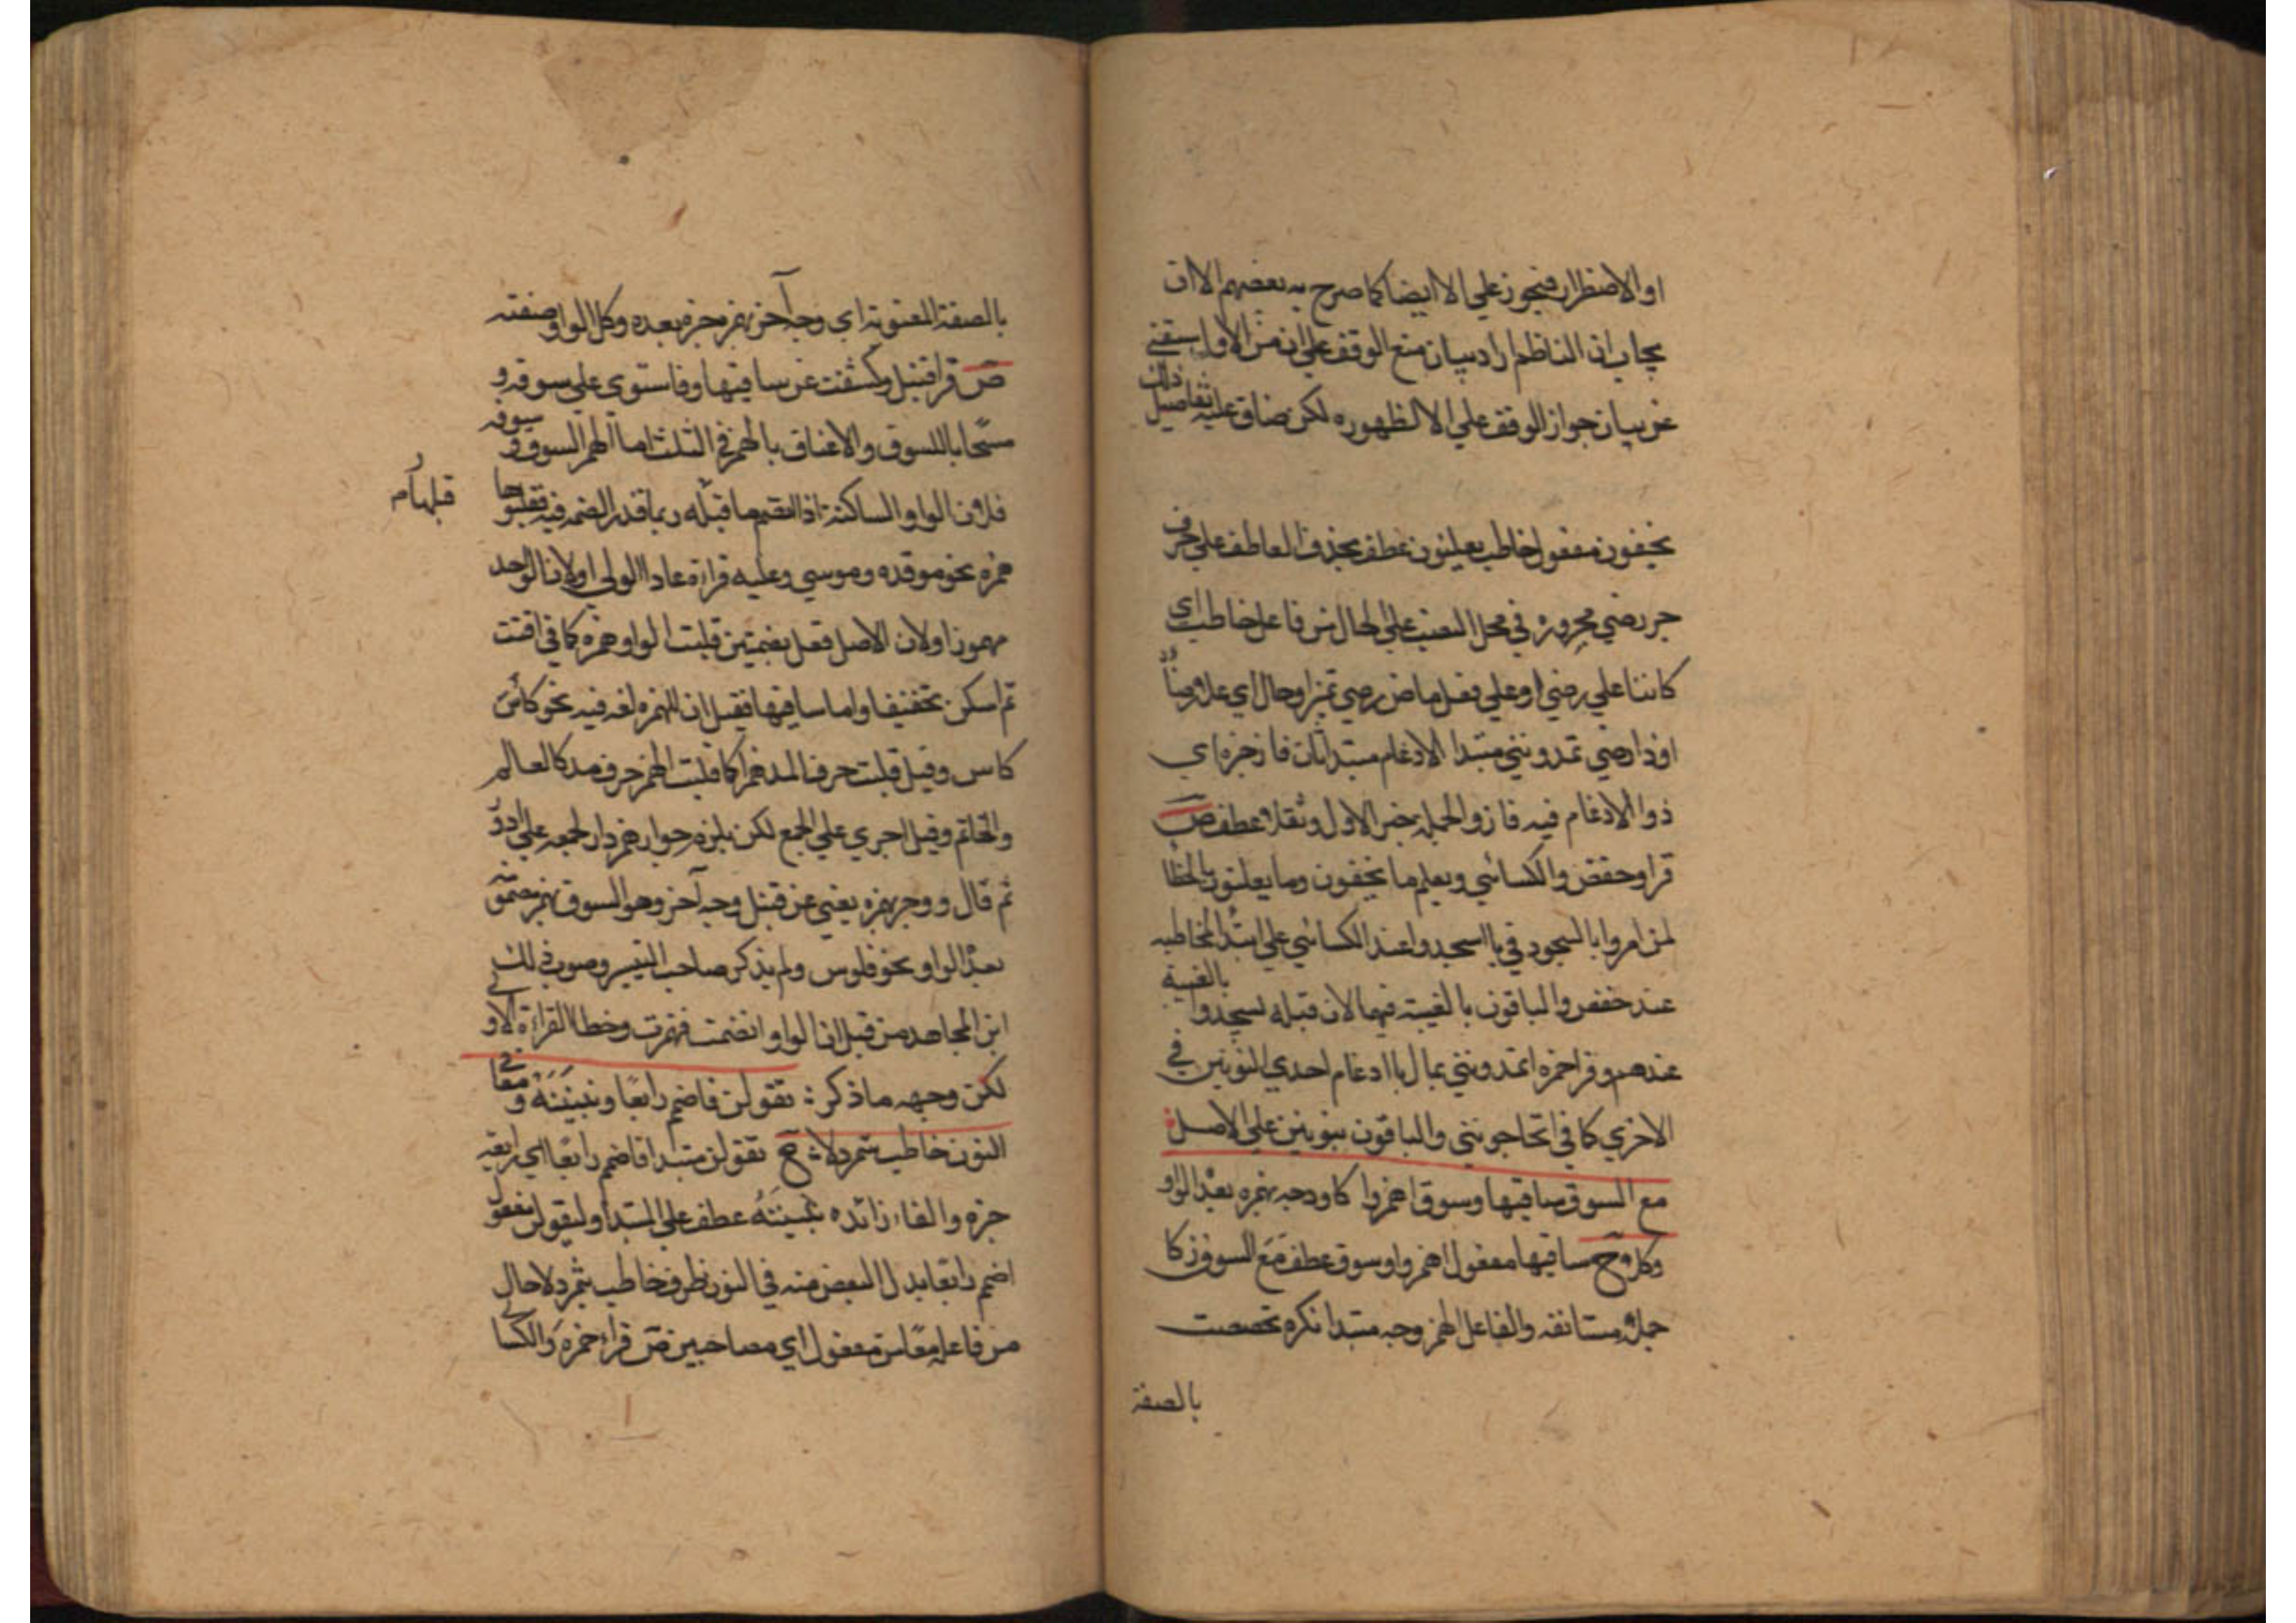 او الاضطرار فيجوز علي الا ايضا كما صرح به بعضهم الا ان
يجاب ان الناظم اراد بيان منع الوقف علي ان من الا وا ستغني
عن بيان جواز الوقف علي الا لظهوره لكن ضاق عليه تفاصيل ذلك
يخفون مفعول خاطب يعلنون عطف بحذف العاطف علي حرف
جر رضي مجروره في محل النصب علي الحال من فاعل خاطب اي
كائنا علي رضي او علي فعل ماض رضي تميز او حال اي علا رضاً
او ذا رضي تمدونني مبتدا الادغام مبتدا ثان فاز خبره اي
ذو الادغام فيه فاز والجملة خبر الاول وثقلا عطف ص
قرا وحفص والكسائي ويعلم ما يخفون وما يعلنون بالخطا
لمن امروا بالسجود في يا اسجدوا عند الكسائي علي ابتدا المخاطبه
بالغيبة
عند حفص والباقون بالغيبة فيهما لان قبله يسجدوا
عندهم وقرا حمزه اتمدونني بمال بادغام احدي النونين في
الاخري كما في اتحاجونني والباقون بنونين علي الاصل
مع السوق ساقيها وسوق اهمزوا كا ووجه بهمزه بعد الواو
وكلا ح ساقيها مفعول اهمزوا وسوق عطف مع السوق زكا
جملة مستانفه والفاعل الهمز وجه مبتدا نكره تخصصت
بالصفة
بالصفة المعنوية اي وجه آخر بهمز خبره بعده وكل الواو صفته
ص قرا قنبل وكشفت عن ساقيها وفاستوي علي سوقه و
مسحا بالسوق والاعناق بالهمز في الثلث اما الهمز السوق و سوقه
فلان الواو الساكنة اذا انضم ما قبله ربما قدر الضمه فيه فقلبوها
قبلها م
همزه نحو موقده وموسي وعليه قراءة عادا الولي او لان الواحد
مهموز او لان الاصل فعل بضمتين قلبت الواو همزه كما في اقتت
ثم اسكن تخفيفا واما ساقيها فقيل ان الهمزه لغه فيه نحو كاس
كاس وقيل قلبت حرف المد همزا كما قلبت الهمز حرف مد كالعالم
والخاتم وقيل اجري علي الجمع لكن يلزم جواز همز دار لجمعه علي ادؤر
ثم قال ووجه بهمزه يعني عن قنبل وجه آخر وهو السوق بهمز مضمو
بعد الواو نحو فلوس ولم يذكر صاحب التيسير وصوب ذلك
ابن المجاهد من قبل ان الواو انضمت فهمزت وخطا القراءة الاو لي
لكن وجهه ما ذكر : نقولن فاضمم رابعا ونبيتنه و معا في
النون خاطب شمردلا ح نقولن مبتدا فاضمم رابعا اي رابعه
خبره والفاء زائده نبيتنه عطف علي المبتدا وليقولن مفعول
اضمم رابعا بدل البعض منه في النون ظرف خاطب شمردلا حال
من فاعله معا من مفعول اي مصاحبين ص قراء حمزه والكسا ئي